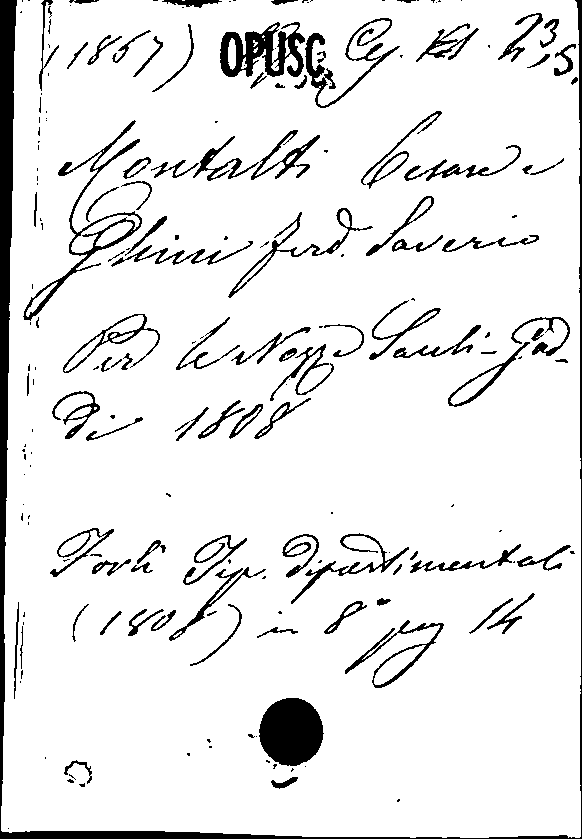 (1867) OPUSC
Montalti Cesare e
Ghini Ferd. Saverio
Per le Nozze Sauli-Gad-
di 1808
Forlì Tip. dipartimentali
(1808) in 8° pag 14